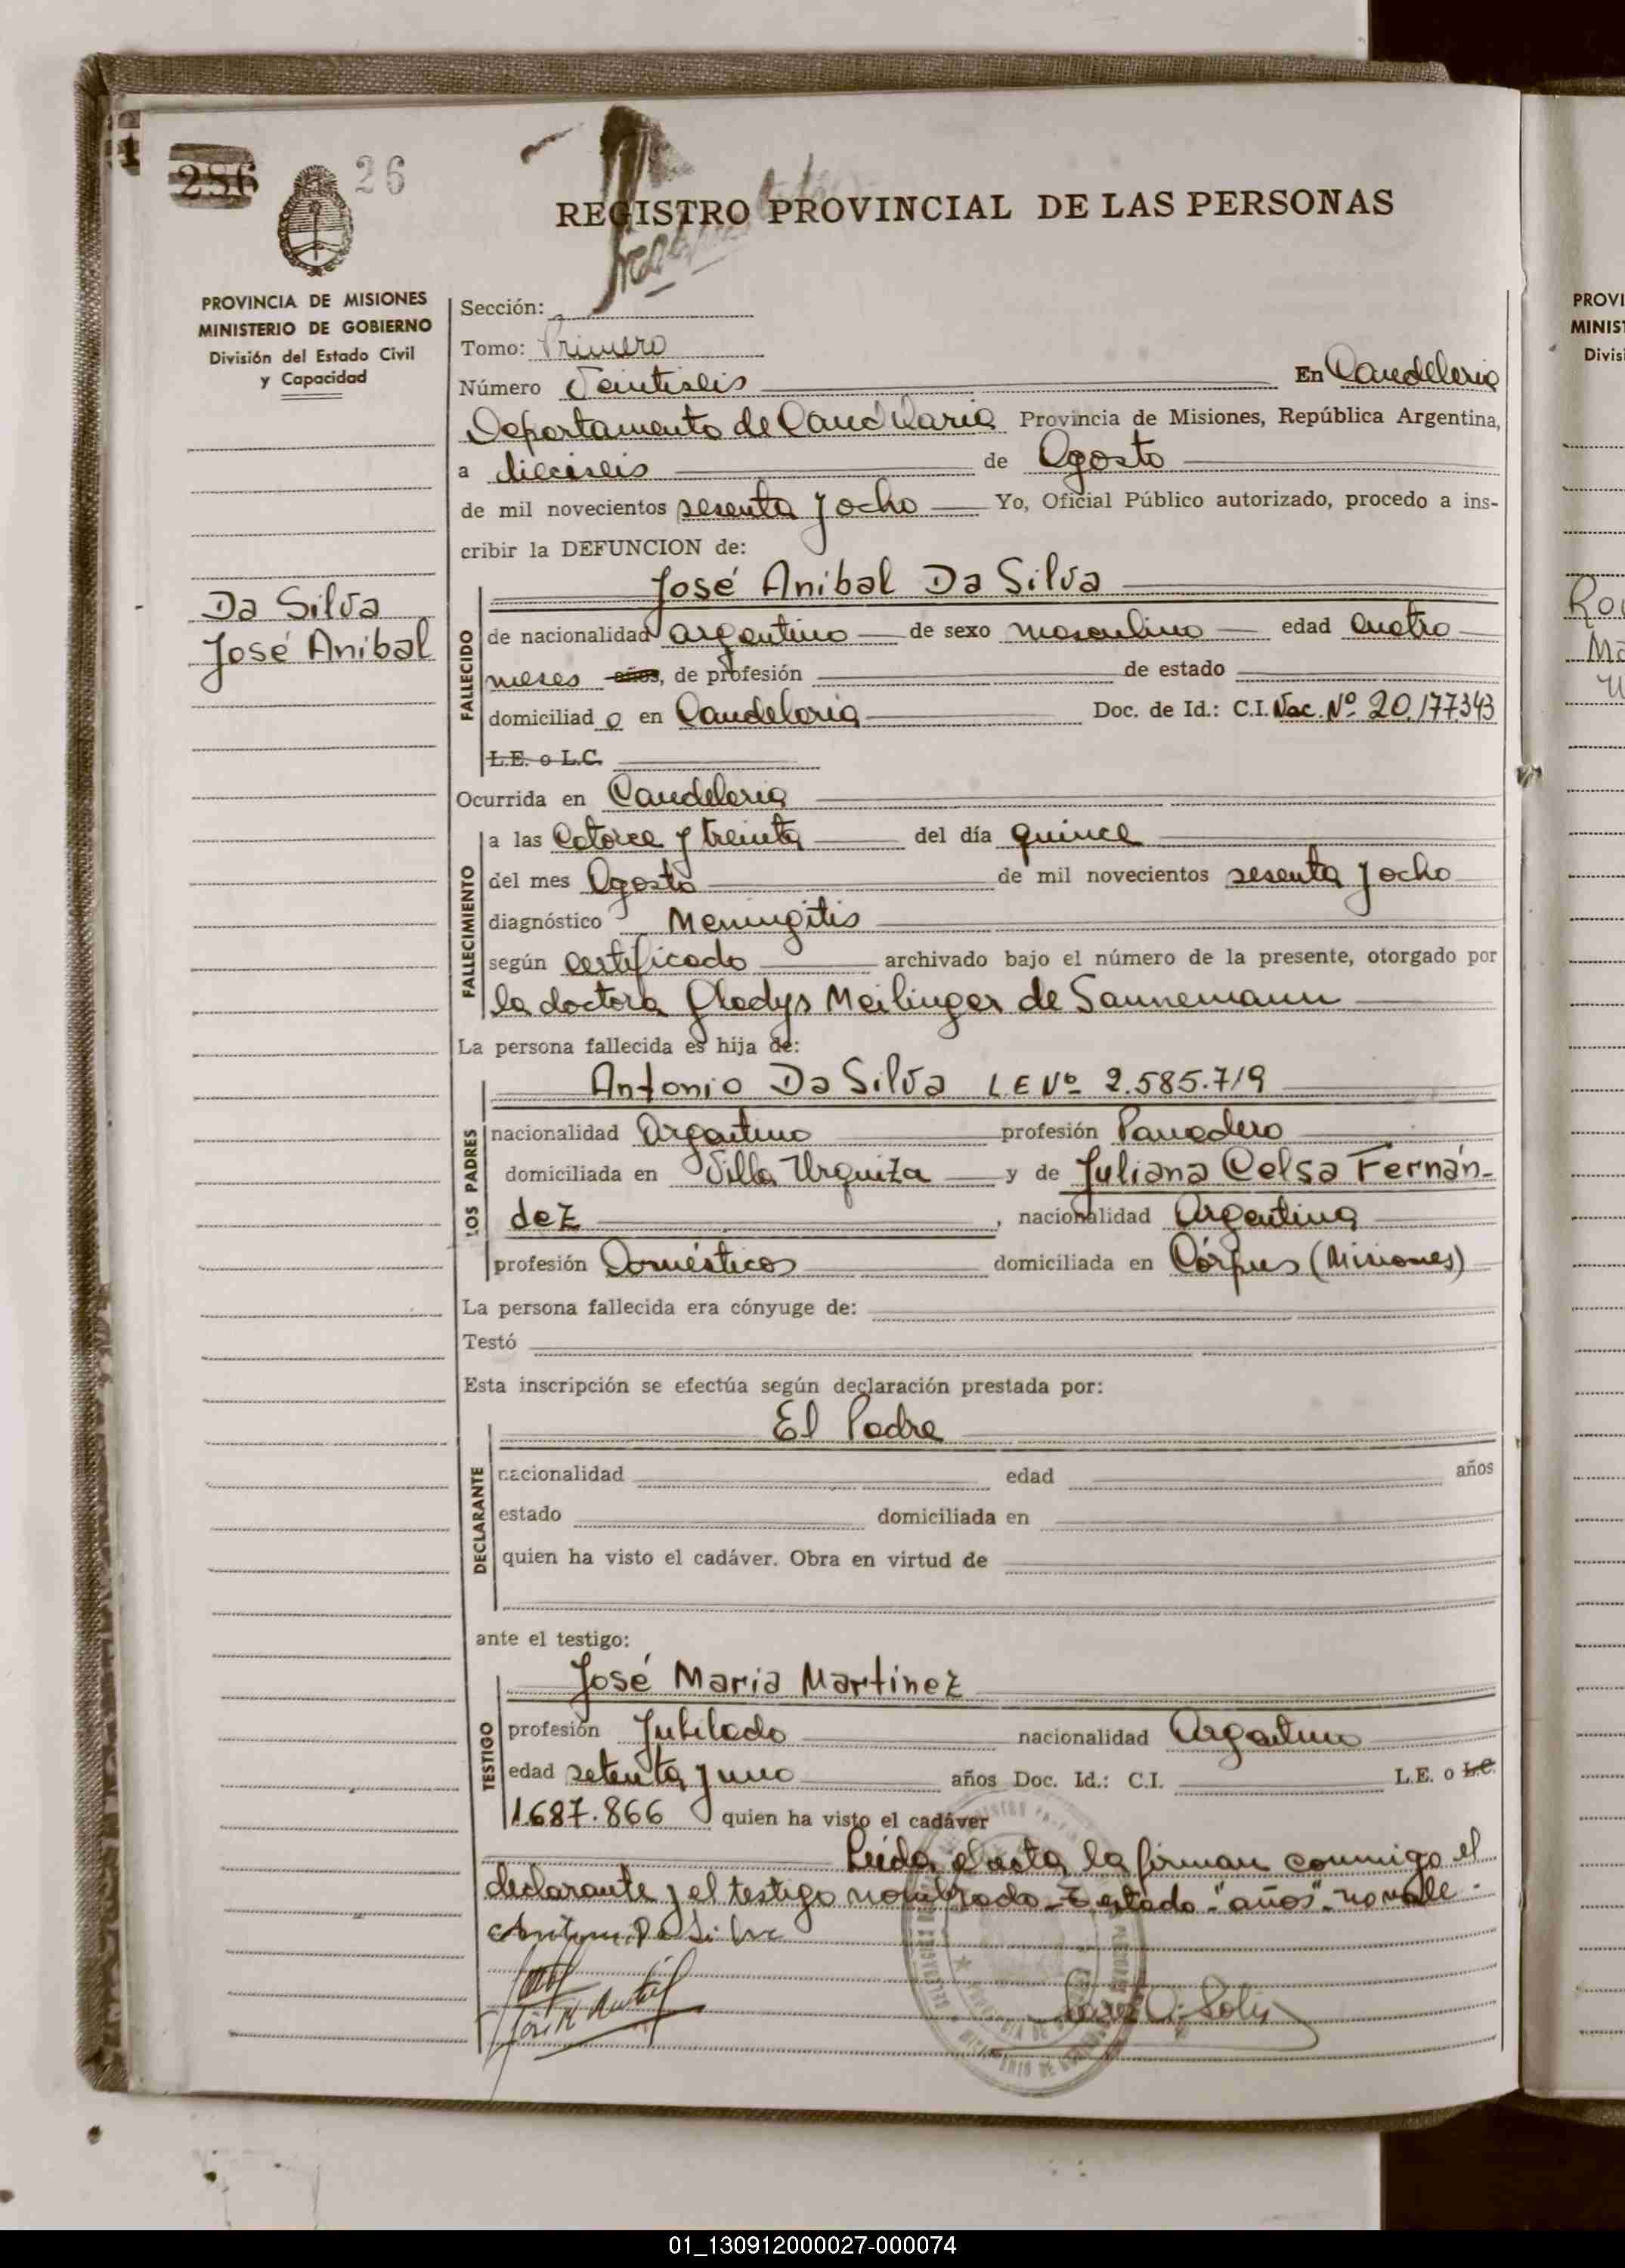 286
26
REGISTRO PROVINCIAL DE LAS PERSONAS
PROVINCIA DE MISIONES
MINISTERIO DE GOBIERNO
División del Estado Civil
y Capacidad
Sección:
Tomo: Primero
Número Veintiseis En Candelaria
Departamento de Candelaria Provincia de Misiones, República Argentina,
a dieciseis de Agosto
de mil novecientos sesenta y ocho Yo, Oficial Público autorizado, procedo a ins-
cribir la DEFUNCION de:
Da Silva
José Anibal
FALLECIDO
José Anibal Da Silva
de nacionalidad argentino de sexo masculino edad cuatro
meses años, de profesión de estado
domiciliad o en Candelaria Doc. de Id.: C.I. Nac. Nº 20.177343
L.E. o L.C.
Ocurrida en Candelaria
FALLECIMIENTO
a las Catorce y treinta del día quince
del mes Agosto de mil novecientos sesenta y ocho
diagnóstico Meningitis
según certificado archivado bajo el número de la presente, otorgado por
la doctora Gladys Meilinger de Sannemann
La persona fallecida es hija de:
LOS PADRES
Antonio Da Silva L.E Nº 2.585.719
nacionalidad Argentino profesión Panadero
domiciliada en Villa Urquiza y de Juliana Celsa Fernán-
dez , nacionalidad Argentina
profesión Domésticos domiciliada en Córpus (Misiones)
La persona fallecida era cónyuge de:
Testó
Esta inscripción se efectúa según declaración prestada por:
DECLARANTE
El Padre
nacionalidad edad años
estado domiciliada en
quien ha visto el cadáver. Obra en virtud de
ante el testigo:
TESTIGO
José Maria Martinez
profesión Jubilado nacionalidad Argentino
edad setenta y uno años Doc. Id.: C.I. L.E. o L.C.
1.687.866 quien ha visto el cadáver
Leida el acta la firman conmigo el
declarante y el testigo nombrado - Testado - "años" - no vale -
Antonio Da Silva
PROVI
MINIS
Divis
01_130912000027-000074